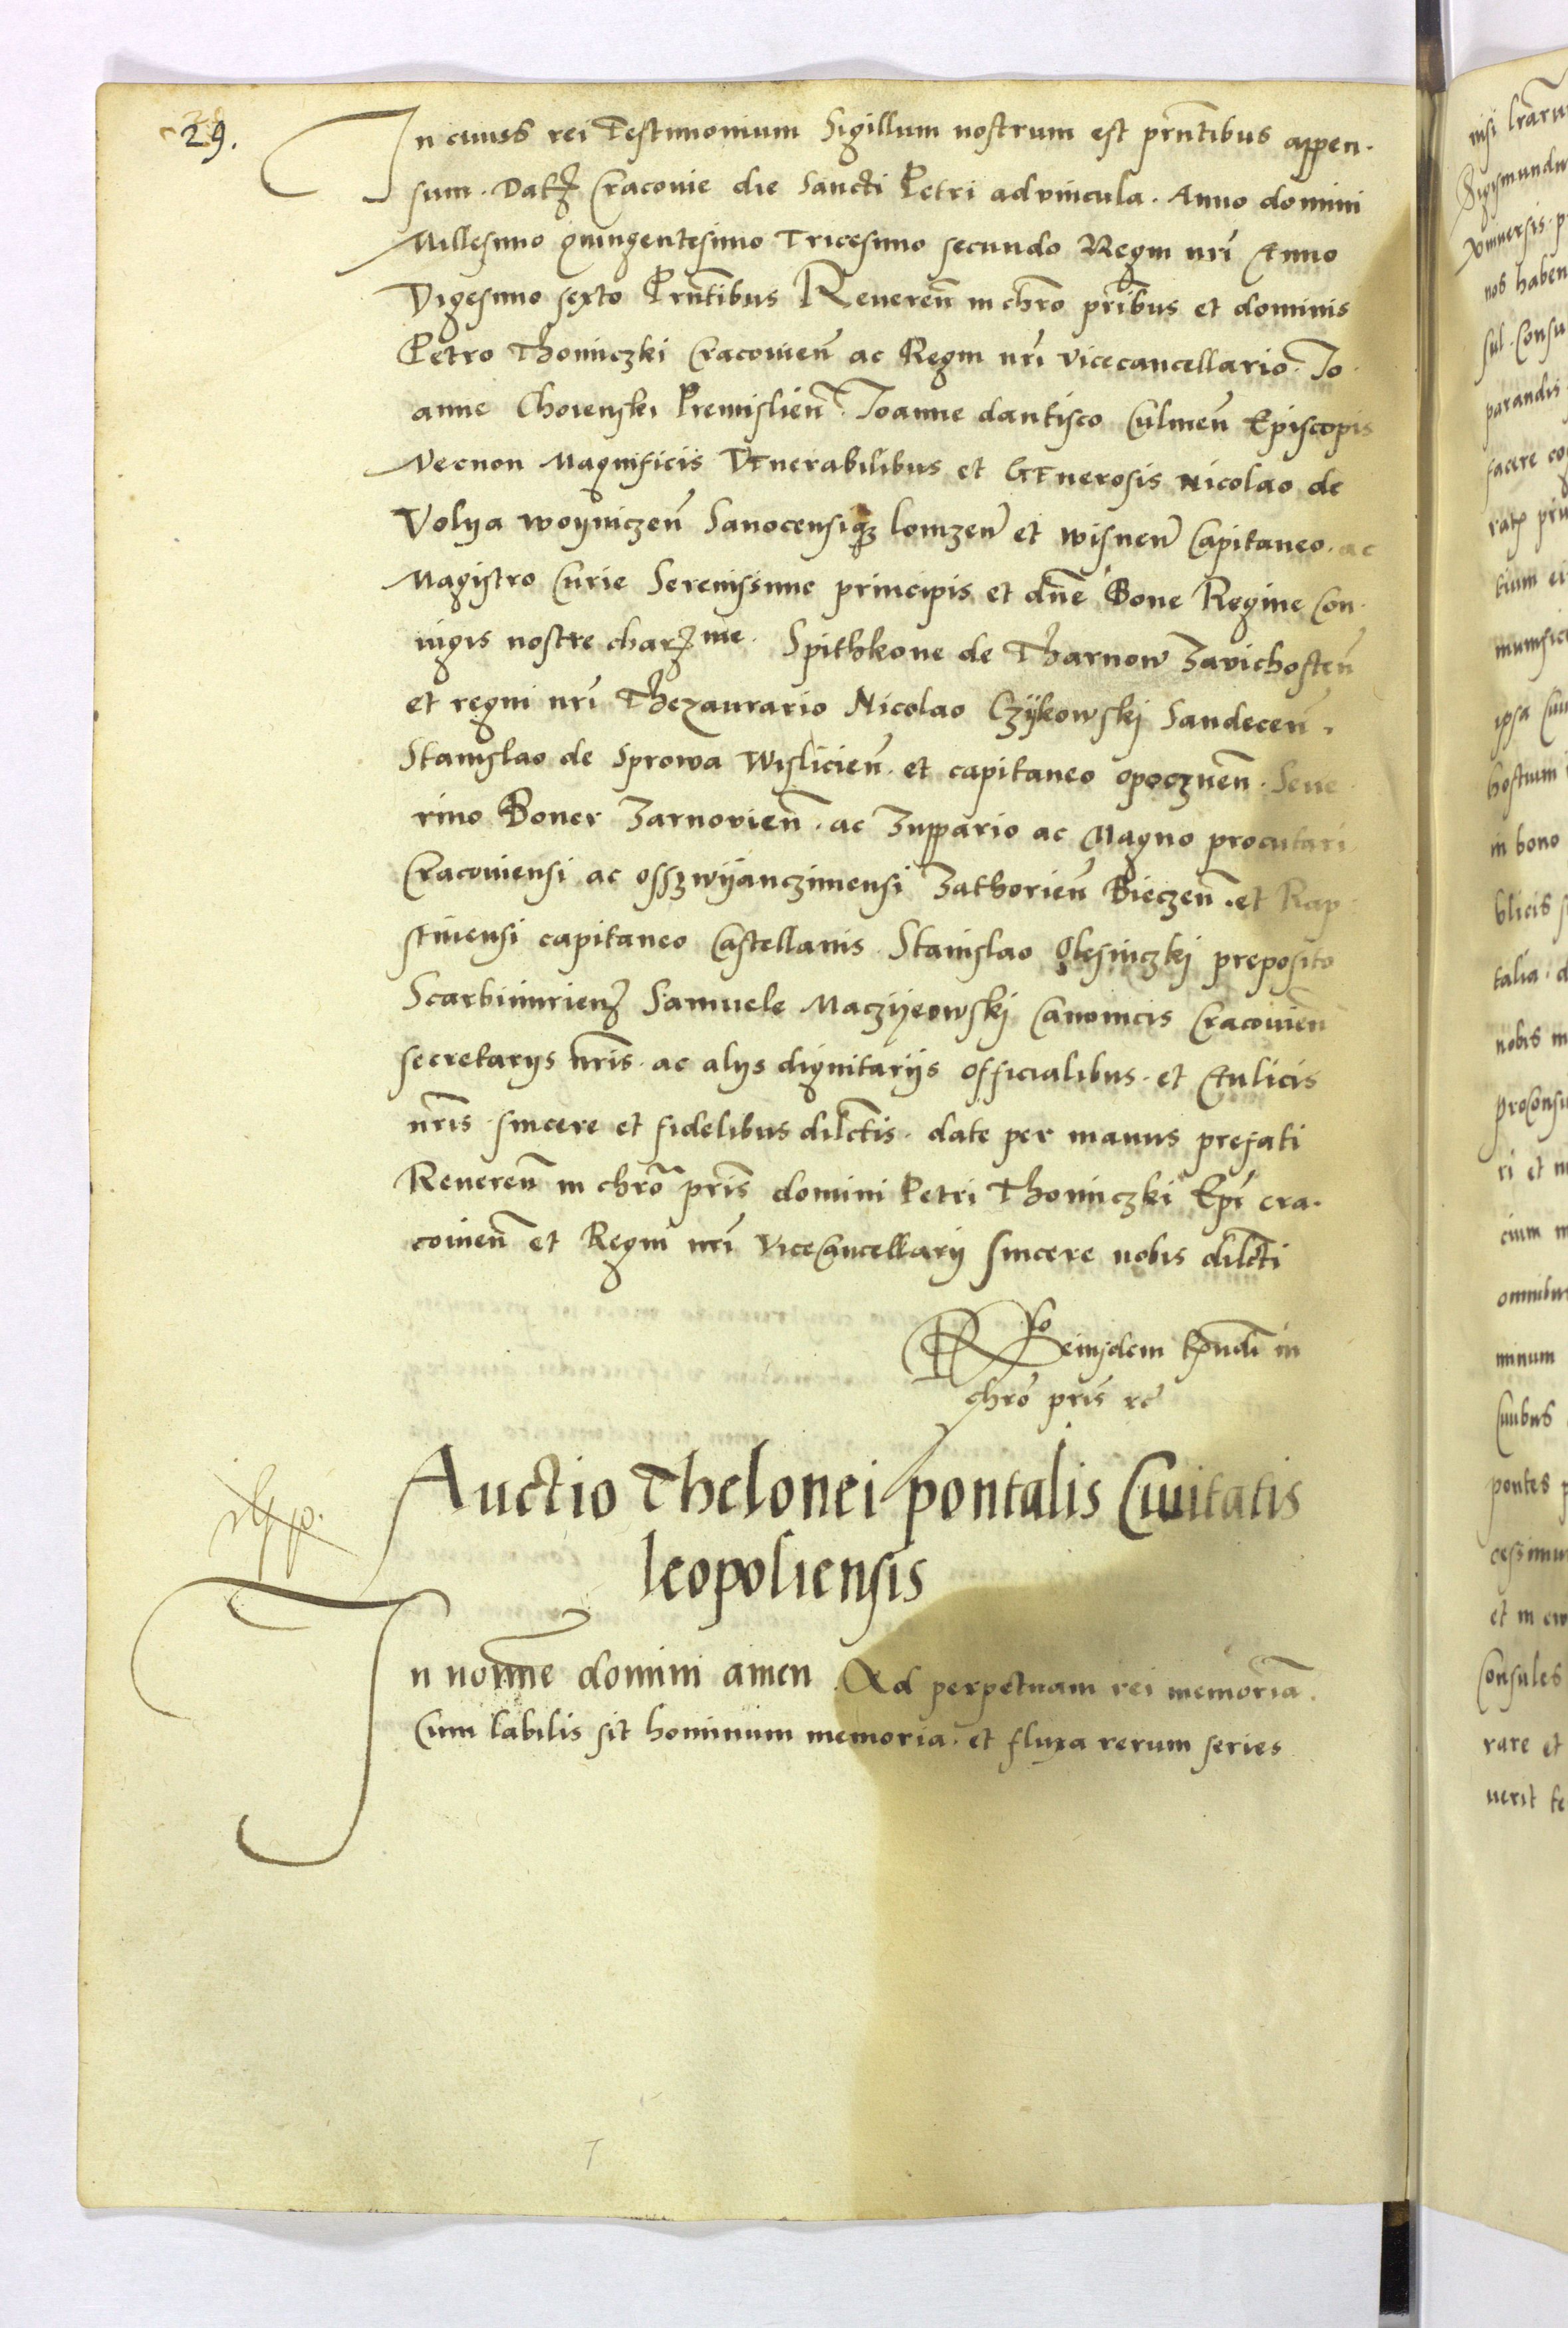 29.
In cuius rei Testimonium Sigillum nostrum est prñtibus appen.
sum. Datȝ Cracouie die Sancti Petri ad vincula. Anno domini
Millesimo quingentesimo Tricesimo secundo Regni nr̃i Anno
Vigesimo sexto Prñtibus Reueren̄ in chr̃o pr̃ibus et dominis
Petro Thomiczki Cracouien̄ ac Regni nr̃i vicecancellario. Jo
anne Choienski Premislien̄. Joanne dantisco Culmen̄ Episcopis
Necnon Magnificis Venerabilibus et Generosis Nicolao de
Volya woyniczen̄ Sanocensiqȝ lomzen̄ et wisnen̄ Capitaneo. ac
Magistro Curie Serenissime principis et dn̄e Bone Regine Con.
iugis nostre charȝme. Spithkone de Tharnow Zavichosten̄
et regni nr̃i Thezaurario Nicolao Czykowskj Sandecen̄.
Stanislao de Sprowa Wislicien̄. et capitaneo opocznen̄. Seue
rino Boner Zarnovien̄. ac Zuppario ac Magno procutari
Cracouiensi ac osszwyanczimensi Zathorien̄ Bieczen̄. et Rap
stinensi capitaneo Castellanis. Stanislao Olesniczkj preposito
Scarbimirienȝ Samuele Maczyeowskj Canonicis Cracouien̄
secretarys nr̃is. ac alys dignitariis officialibus. et Aulicis
nr̃is. sincere et fidelibus dilctis. date per manus prefati
Reueren̄ in chr̃o pr̃is domini Petri Thomiczki Epĩ cra.
couien̄ et Regni nr̃i viceCancellarij sincere nobis dilcti
Rło eiusdem Rndi in
chr̃o pr̃is rc̃
Auctio Thelonei pontalis Ciuitatis
leopoliensis
In nom̃ne domini amen Ad perpetuam rei memoriã.
Cum labilis sit hominum memoria. et fluxa rerum series
nisi lr̃aru
Sigismundu
vniuersis. p
nos haben
sul. Consu
parandis
facere co
tium ei
ipsa
hostium
in bono
blicis
talia. d
nobis
proconsu
ri et
omnibus
minum
Ciuibus
pontes
cessimu
et in
Consules
rare et
uerit te